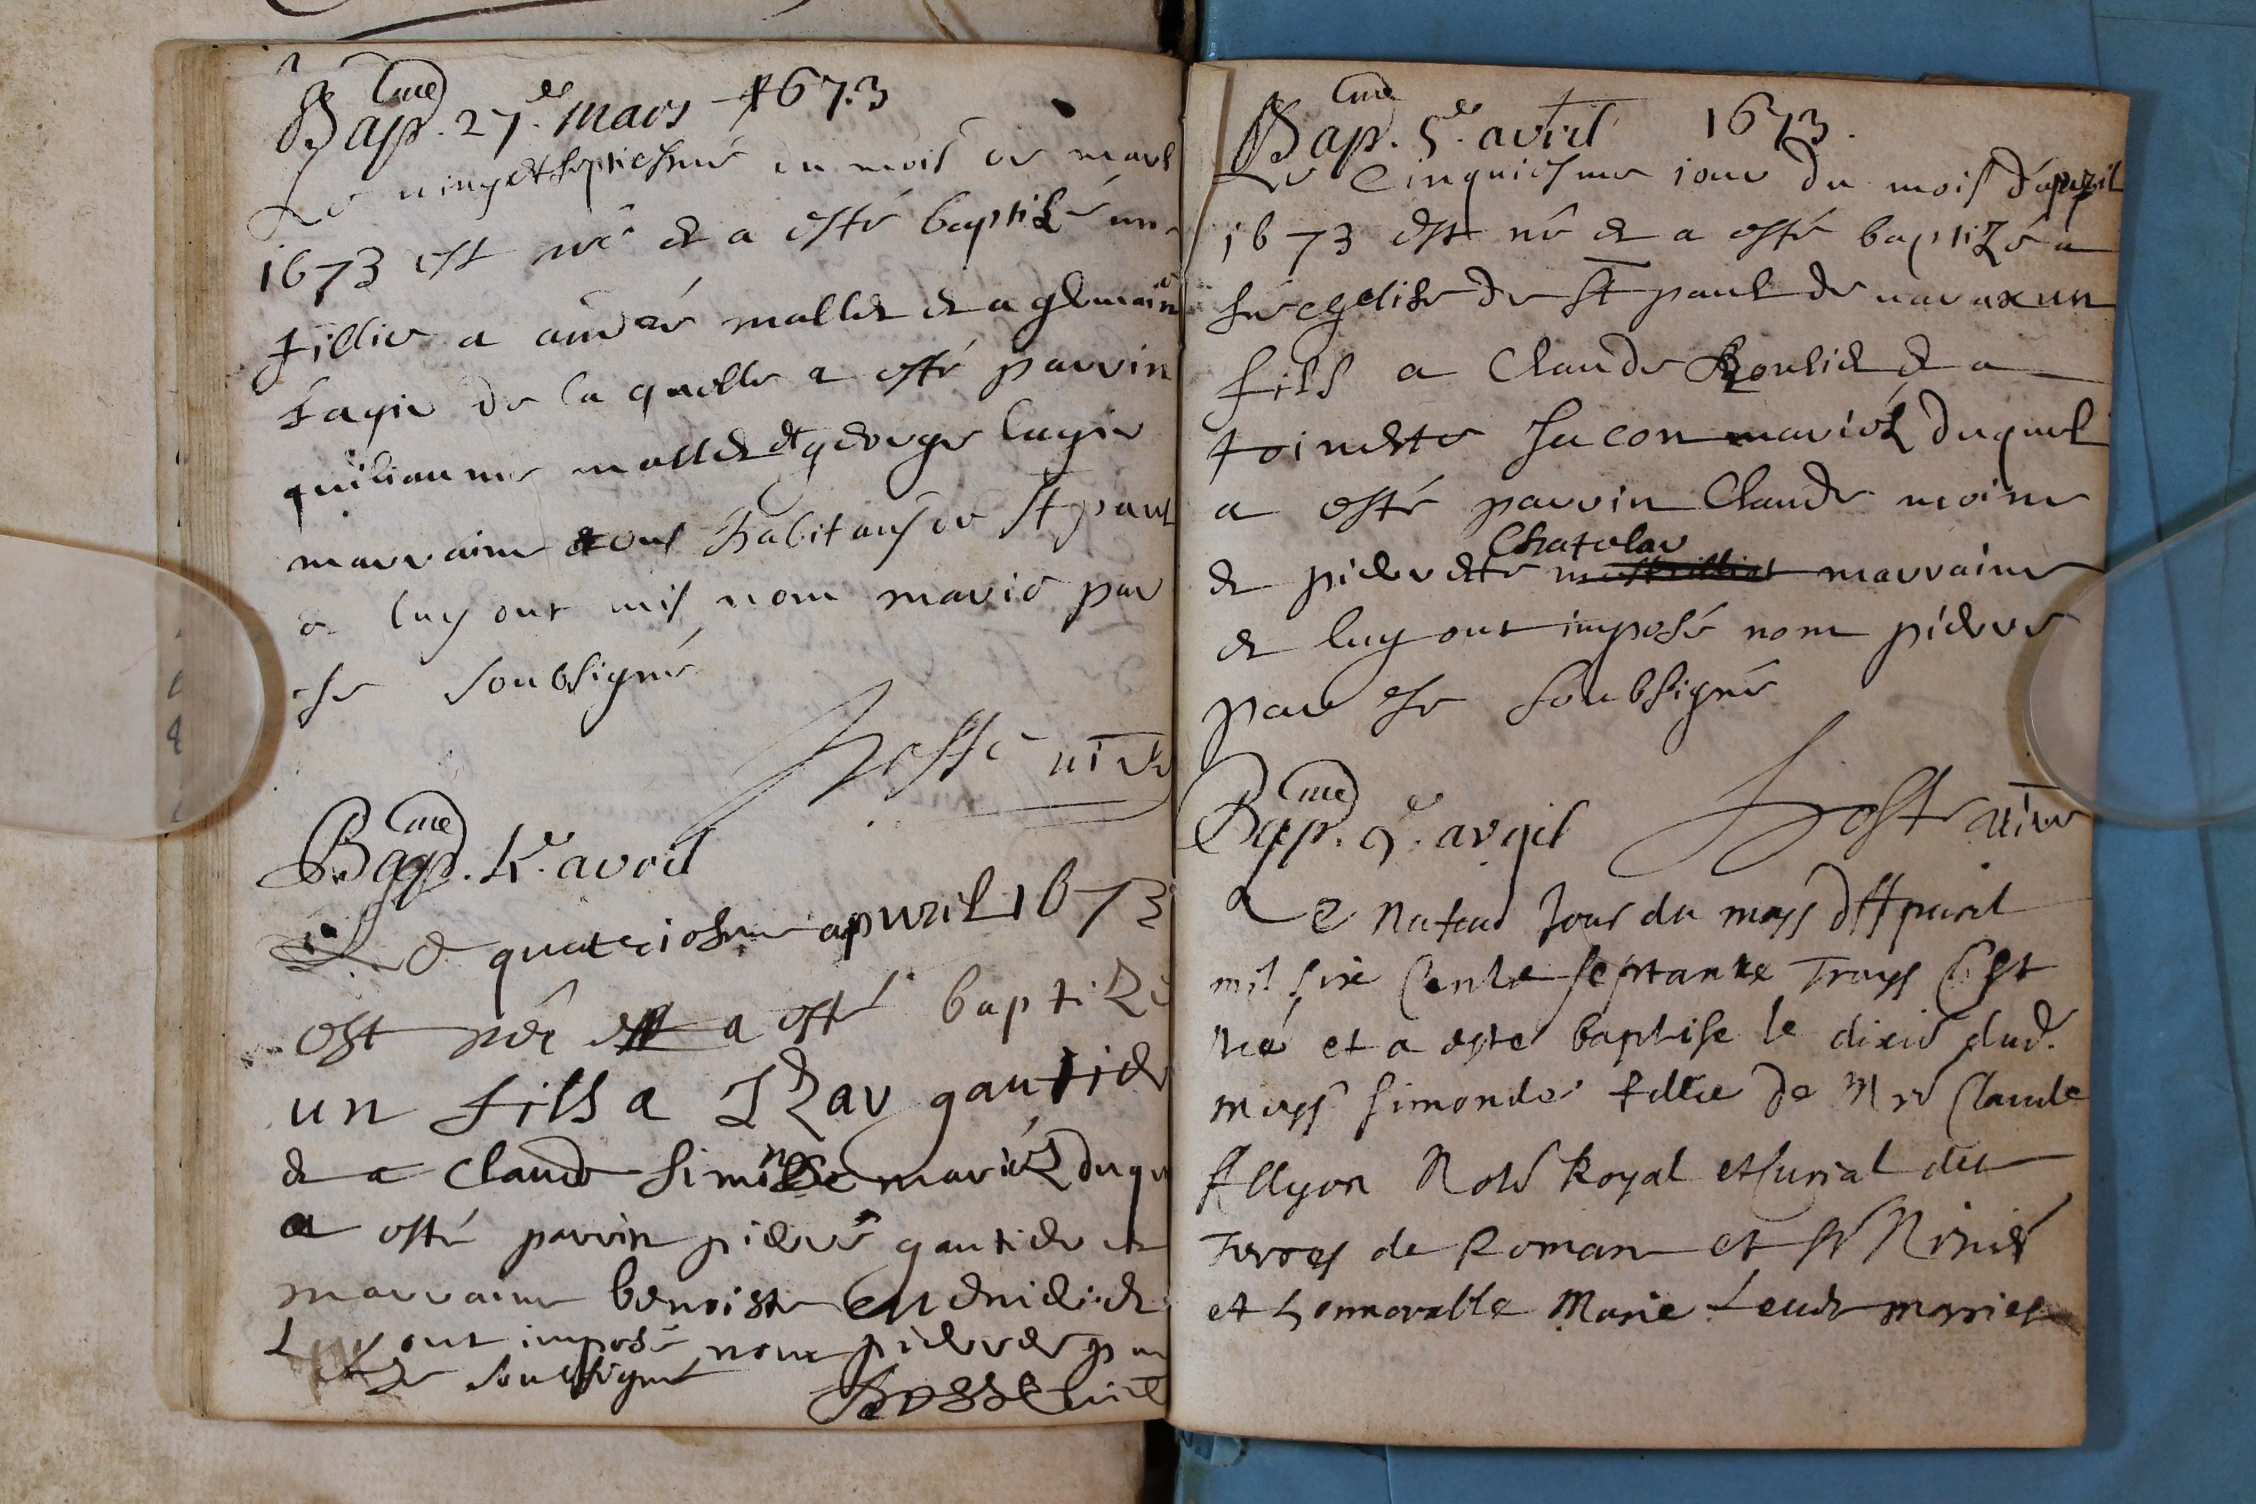 Bap.me 27.e mars 1673
Le vingtet septiesme du mois de mars
1673 est né et a esté baptizé un
fillie a andré mallet et a germain
fagie de la quelle a esté parrin
guiliaume mallet et george lagie
marraine tous habitans de St paul
& luy ont mis nom marie par
soubsigné
hoste vic
Bap.me 4.e avril
Le quatriesme apvril 1673
est né et a esté baptizé
un fils a gautier
et a claude mariéz duqu
a esté parrin pierre gautier et
marraine benoiste et
luy ont imposé nom pierre par
soubsigné
hoste vic
Bap.me 5.e avril 1673.
Le cinquiesme iour du mois d'appvril
1673 est né et a esté baptizé a
eglise de St paul de varax un
fils a Claude et a
toinette Jucon mariéz duquel
a esté parrin Claude moine
et pierrette Chatelar marraine
et luy ont imposé nom pierre
par soubsigné
hoste vic
Bap.me 9.e avril
Le Jour du moys d'Apvril
mil six Cents septante Troys Est
né et a este baptise le dixie dud.
moys simonde fillie de Mre Claude
Allyon Royal et Curial des
Terres de Roman et St
et honnorable Marie mariés